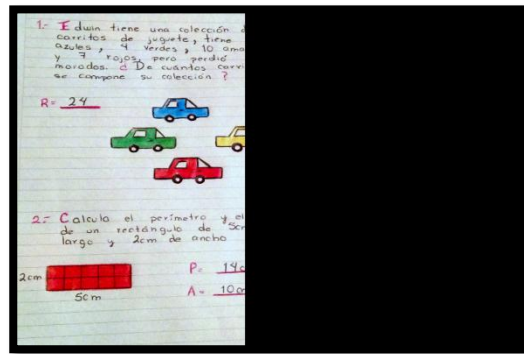 1.- Edwin tiene una colección
carritos de juguete, tiene
azules, 4 verdes, 10
y 7 rojos, pero perdió
morados. ¿De cuántos
se compone su colección?
R= 24
2.- Calcula el perímetro y el
de un rectángulo de 5cm
largo y 2cm de ancho
2cm
5cm
P= 14
A= 10